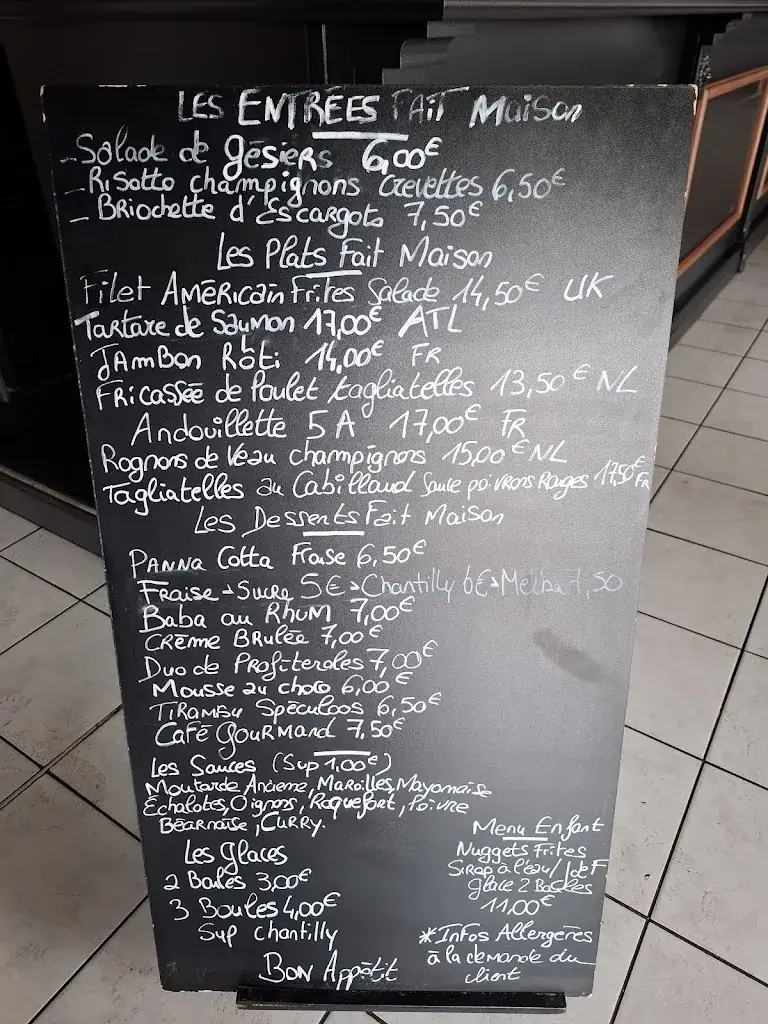 LES ENTRÉES FAIT Maison
- Salade de gésiers 6,00€
- Risotto champignons Crevettes 6,50€
- Briochette d'Escargots 7,50€
Les Plats Fait Maison
Filet Américain Frites Salade 14,50€ UK
Tartare de Saumon 17,00€ ATL
JAMBON Rôti 14,00€ FR
Fricassée de Poulet tagliatelles 13,50€ NL
Andouillette 5A 17,00€ FR
Rognons de Veau champignons 15,00€ NL
Tagliatelles au Cabillaud Sauce poivrons Rouges 17,50€ FR
Les Desserts Fait Maison
PANNA Cotta Fraise 6,50€
Fraise → Sucre 5€ → Chantilly 6€ → Melba 7,50
Baba au Rhum 7,00€
Crème Brulée 7,00€
Duo de Profiteroles 7,00€
Mousse au choco 6,00€
TIRAMISU Spéculoos 6,50€
Café Gourmand 7,50€
Les Sauces (Sup 1,00€)
Moutarde Ancienne, Maroilles, Mayonaise
Echalotes, Oignons, Roquefort, Poivre
Béarnaise, CURRY.
Les Glaces
2 Boules 3,00€
3 Boules 4,00€
Sup chantilly
Menu Enfant
Nuggets Frites
Sirop à l'eau / J de F
Glace 2 Boules
11,00€
*Infos Allergènes
à la demande du
client
BON Appétit